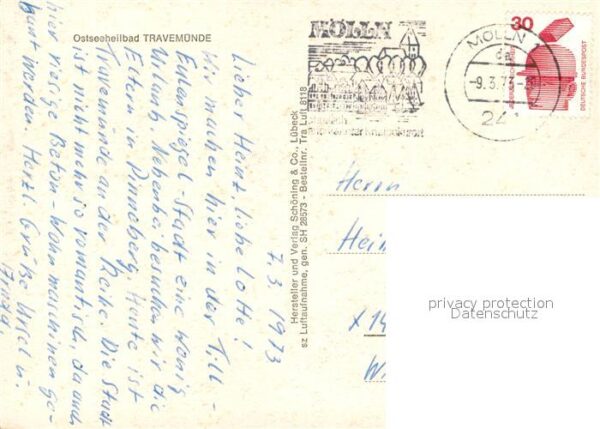 Ostseeheilbad TRAVEMÜNDE
7.3.1973
Liebe Heinz, liebe Lotte!
Wir machen hier in der Till-
Eulenspiegel-Stadt eine Wenig
Urlaub. Nebenbei besuchen wir die
Eltern in Pinneberg. Heute ist
Travemünde an der Reihe. Die Stadt
ist nicht mehr so romantisch, da auch
hier einige Beton-Wohnmaschinen ge-
baut werden. Herzl. Grüße Ursel u.
Hersteller und Verlag Schöning & Co., Lübeck
sz Luftaufnahme, gen. SH 28573 - Bestellnr. Tra Luft 8118
MÖLLN
MÖLLN 1
da
-9.3.73-
241
30
DEUTSCHE BUNDESPOST
Herrn
Hein
X 14
W
privacy protection
Datenschutz